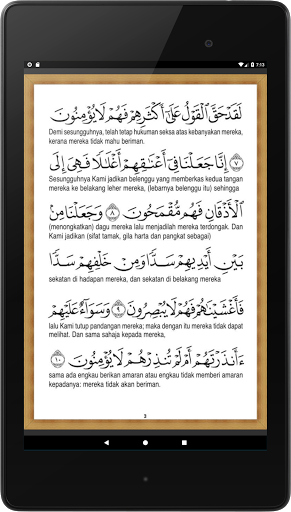 7:13
لَقَدْ حَقَّ الْقَوْلُ عَلَىٰٓ أَكْثَرِهِمْ فَهُمْ لَا يُؤْمِنُونَ
Demi sesungguhnya, telah tetap hukuman seksa atas kebanyakan mereka,
kerana mereka tidak mahu beriman.
٧ إِنَّا جَعَلْنَا فِىٓ أَعْنَٰقِهِمْ أَغْلَٰلًا فَهِىَ إِلَى
Sesungguhnya Kami jadikan belenggu yang memberkas kedua tangan
mereka ke belakang leher mereka, (lebarnya belenggu itu) sehingga
الْأَذْقَانِ فَهُم مُّقْمَحُونَ ٨ وَجَعَلْنَا مِنۢ
(menongkatkan) dagu mereka lalu menjadilah mereka terdongak. Dan
Kami jadikan (sifat tamak, gila harta dan pangkat sebagai)
بَيْنِ أَيْدِيهِمْ سَدًّا وَمِنْ خَلْفِهِمْ سَدًّا
sekatan di hadapan mereka, dan sekatan di belakang mereka
فَأَغْشَيْنَٰهُمْ فَهُمْ لَا يُبْصِرُونَ ٩ وَسَوَآءٌ عَلَيْهِمْ
lalu Kami tutup pandangan mereka; maka dengan itu mereka tidak dapat
melihat. Dan sama sahaja kepada mereka,
ءَأَنذَرْتَهُمْ أَمْ لَمْ تُنذِرْهُمْ لَا يُؤْمِنُونَ ١٠
sama ada engkau berikan amaran atau engkau tidak memberi amaran
kepadanya: mereka tidak akan beriman.
3